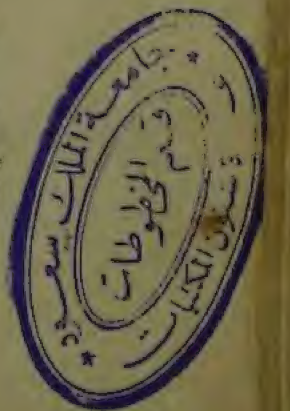 جامعة الملك سعود
قسم
المخطوطات
شئون المكتبات